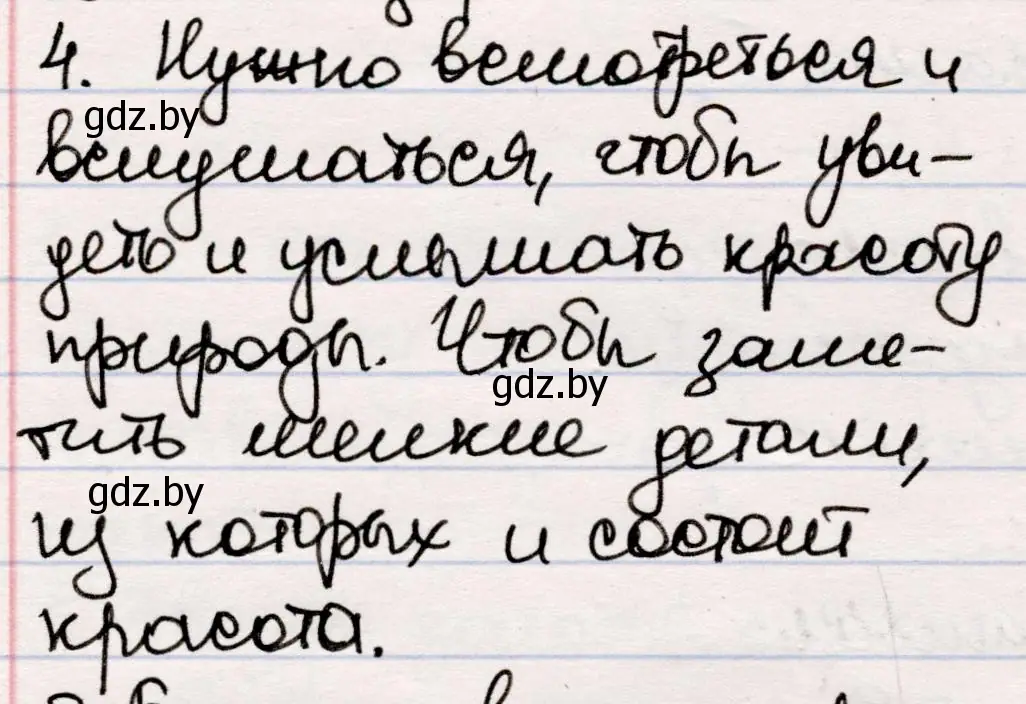 4. Нужно всмотреться и
gdz.by
вслушаться, чтобы уви-
деть и услышать красоту
природы. Чтобы заме-
gdz.by
тить мелкие детали,
gdz.by
из которых и состоит
красота.